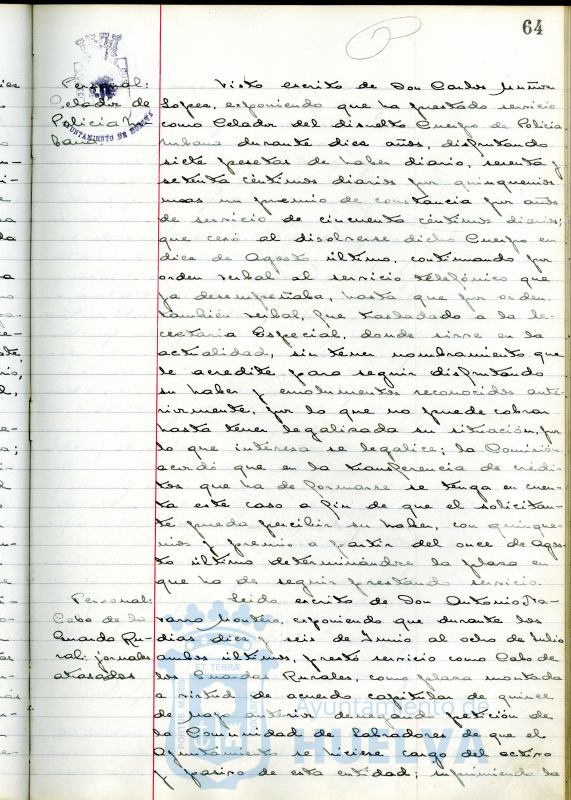 64
Personal:
Celador de
Policía Ur-
bana
AYUNTAMIENTO DE HUELVA
Visto escrito de Don Carlos Muñoz
Lopez, exponiendo que ha prestado servicio
como Celador del disuelto Cuerpo de Policía
Urbana durante diez años, disfrutando
siete pesetas de haber diario, sesenta y
setenta céntimos diarios por quinquenios
mas un premio de constancia por años
de servicio de cincuenta céntimos diarios;
que cesó al disolverse dicho Cuerpo en
diez de Agosto último, continuando por
orden verbal al servicio telefónico que
ya desempeñaba, hasta que por orden,
también verbal, fue trasladado a la Se-
cretaría Especial, donde sirve en la
actualidad, sin tener nombramiento que
le acredite para seguir disfrutando
su haber y emolumentos reconocidos ante-
riormente, por lo que no puede cobrar
hasta tener legalizada su situación, por
lo que interesa se legalice; la Comisión
acordó que en la transferencia de crédi-
tos que ha de formarse se tenga en cuen-
ta este caso a fin de que el solicitan-
te pueda percibir su haber, con quinque-
nios y premio a partir del once de Agos-
to último determinándose la plaza en
que ha de seguir prestando servicio.
Personal:
Cabo de la
Guardia Ru-
ral: jornales
atrasados
Leido escrito de Don Antonio Na-
varro Montero, exponiendo que durante los
dias diez y seis de Junio al ocho de Julio
ambos últimos, prestó servicio como Cabo de
los Guardas Rurales, como plaza montada
a virtud de acuerdo capitular de quince
de Mayo anterior denegando petición de
la Comunidad de Labradores de que el
Ayuntamiento se hiciere cargo del activo
y pasivo de esta entidad; suprimiendo la
Ayuntamiento de
HUELVA